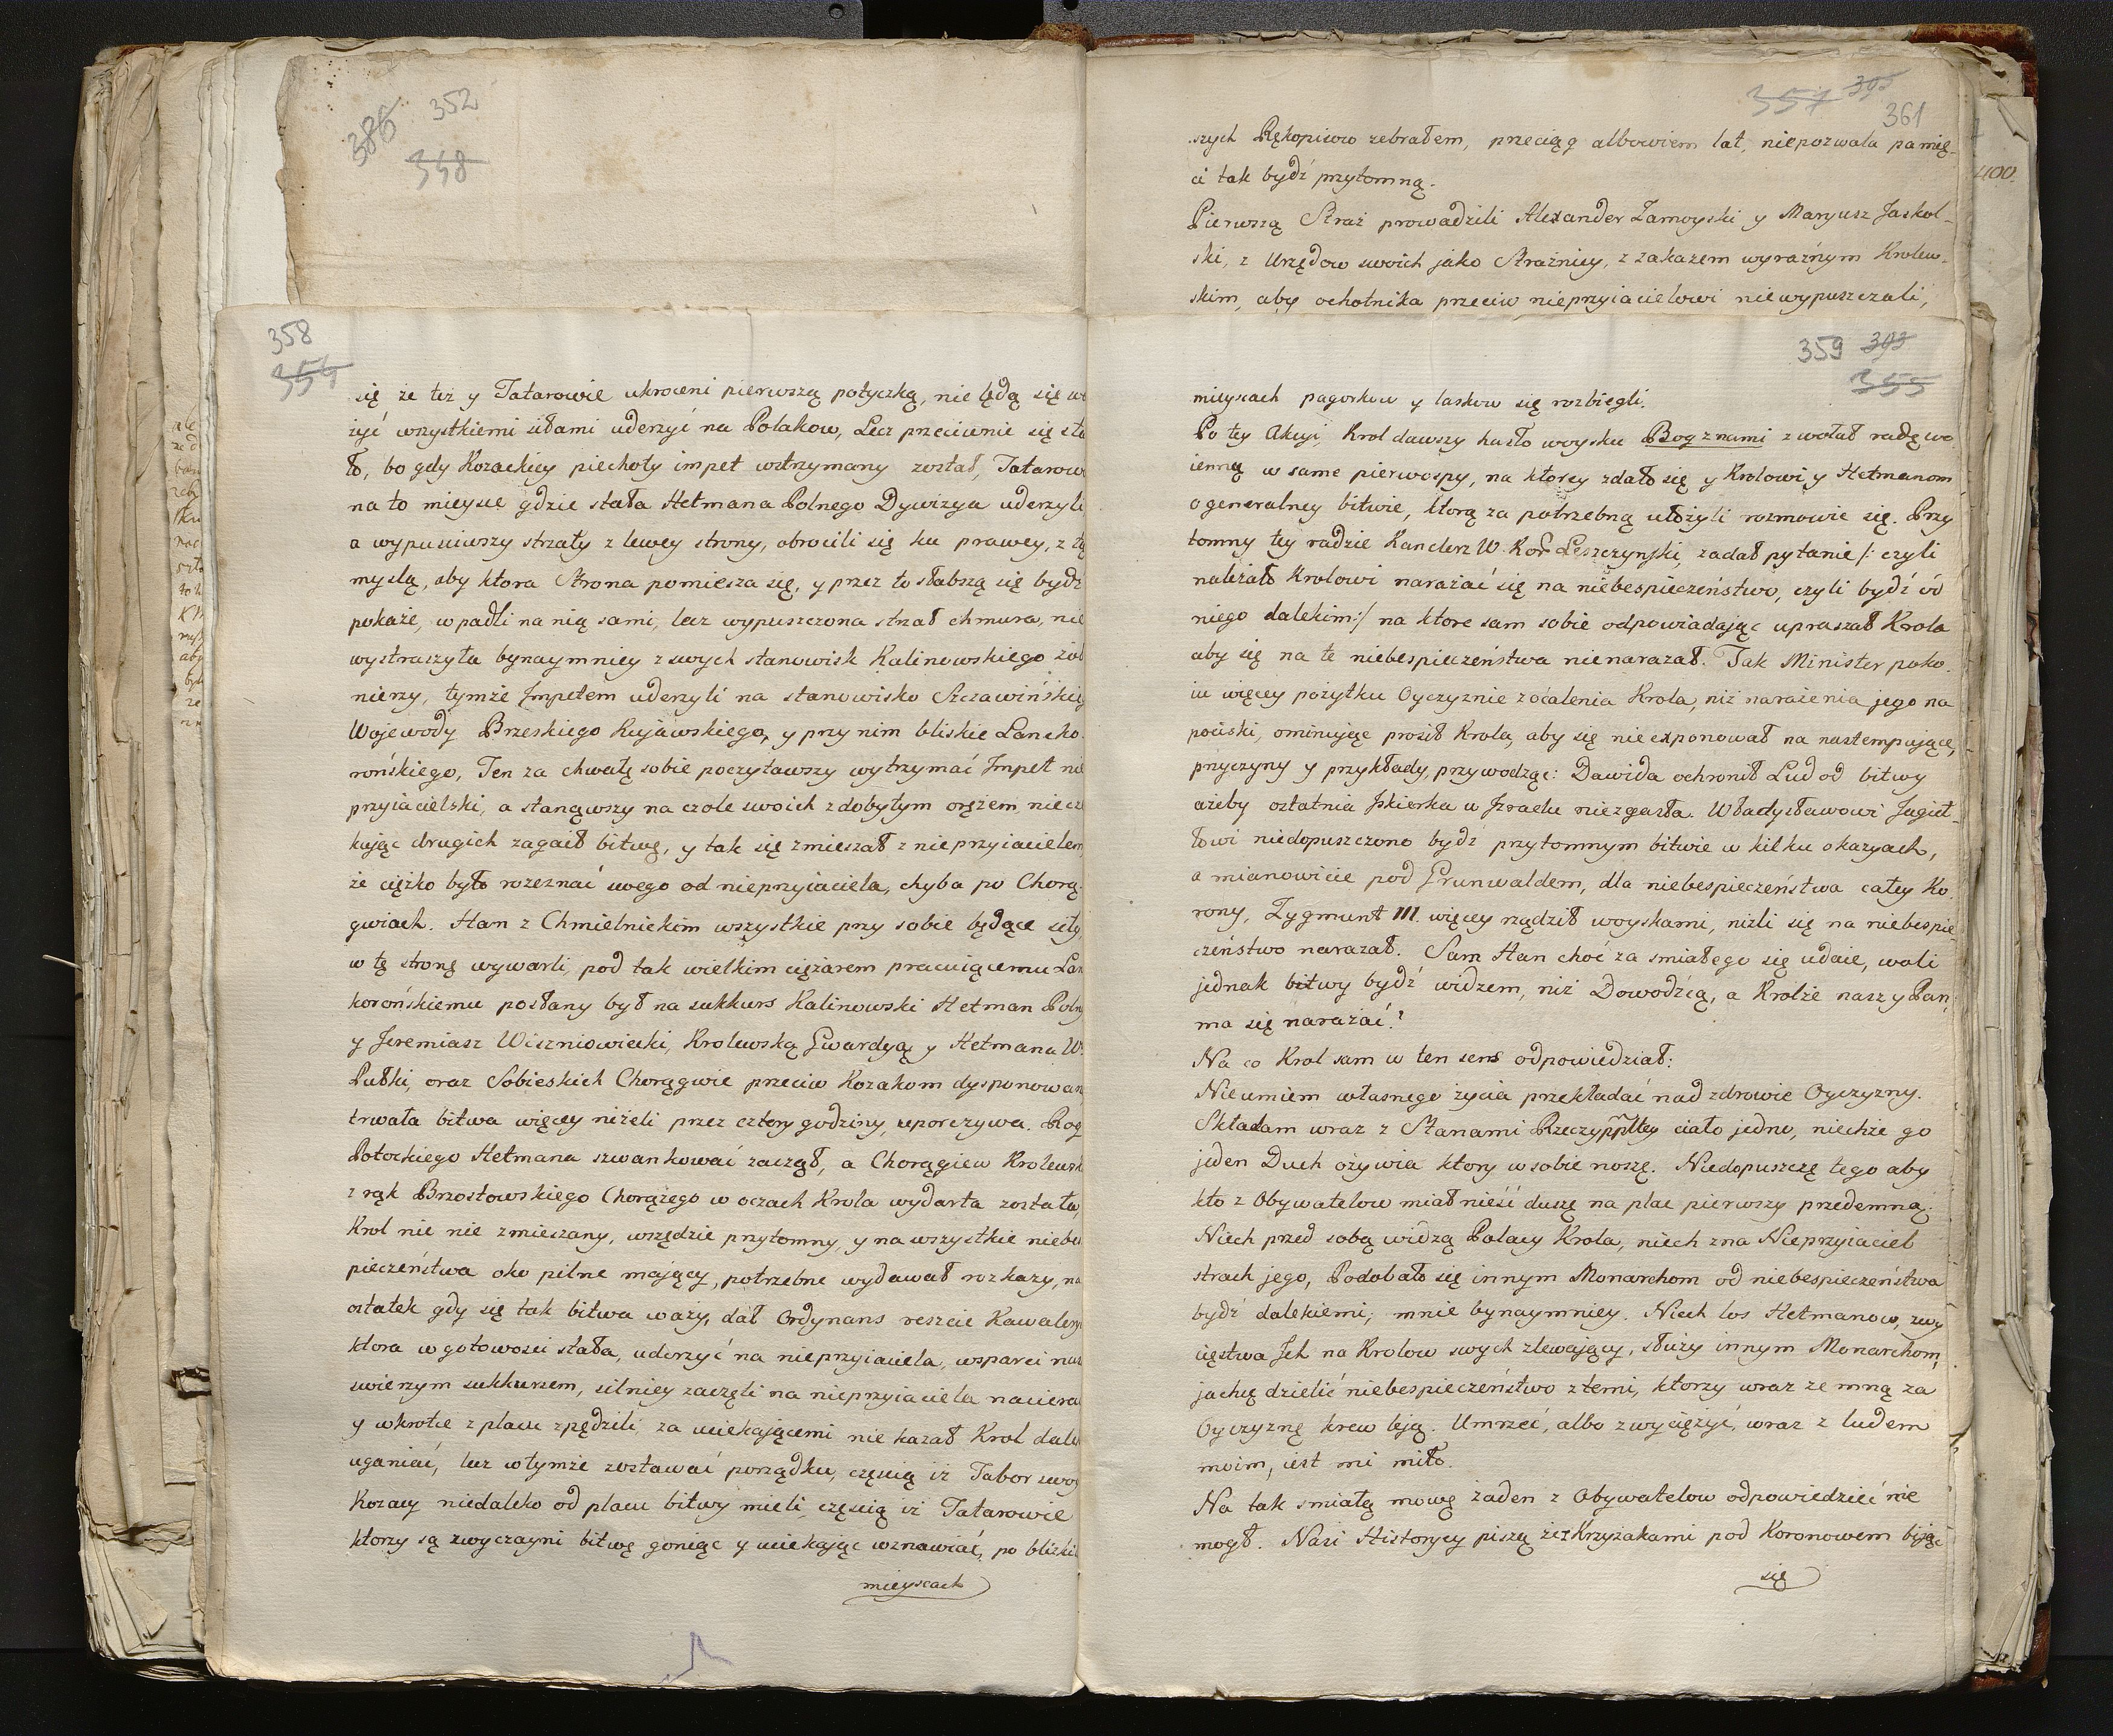 386 352
348
357 395
361
szych Rękopisow zebrałem, przeciąg albowiem lat, niepozwala pamię-
ci tak bydź przytomną.
Pierwszą Straż prowadzili Alexander Zamoyski y Maryusz Jaskol-
ski, z Urzędow swoich jako Strażnicy, z zakazem wyraźnym Krolew-
skim, aby ochotnika przeciw nieprzyiacielowi niewypuszczali,
400.
358
354
się że też y Tatarowie ukroceni pierwszą potyczką, nie będą się
żyć wszystkiemi siłami uderzyć na Polakow, Lecz przeciwnie się sta
ło, bo gdy Kozackiey piechoty impet wstrzymany został, Tatarow
na to mieysce gdzie stała Hetmana Polnego Dywizya uderzyli
a wypusciwszy strzały z lewey strony, obrocili się ku prawey, z tą
myslą, aby ktora Strona pomiesza się, y przez to słabszą się bydź
pokaże, wpadli na nią sami, lecz wypuszczona strzał chmura, nie
wystraszyła bynaymniey z swych stanowisk Kalinowskiego żoł
nierzy, tymże Impetem uderzyli na stanowisko Szczawińskieg
Wojewody Brzeskiego Kujawskiego, y przy nim bliskie Lancko
rońskiego, Ten za chwałę sobie poczytawszy wytrzymać Impet nie
przyiacielski, a stanąwszy na czole swoich z dobytym orężem, niecze
kając drugich zagaił bitwę, y tak się zmieszał z nieprzyiacielem
że ciężko było rozeznać swego od nieprzyiaciela, chyba po Chorą-
gwiach. Han z Chmielnickim wszystkie przy sobie będące siły,
w tę stronę wywarli, pod tak wielkim ciężarem pracuiącemu Lan
korońskiemu posłany był na sukkurs Kalinowski Hetman Polny
y Jeremiasz Wiszniowiecki, Krolewską Gwardyą y Hetmana W.
Pułki, oraz Sobieskich Chorągwie przeciw Kozakom dysponowan
trwała bitwa więcey niżeli przez cztery godziny, uporczywa. Rog
Potockiego Hetmana szwankować zaczął, a Chorągiew Krolewsk
z rąk Brzostowskiego Chorążego w oczach Krola wydarta została,
Krol nie nie zmieszany, wszędzie przytomny, y na wszystkie niebes
pieczeństwa oko pilne mający, potrzebne wydawał rozkazy, na
ostatek gdy się tak bitwa waży, dał Ordynans reszcie Kawalery
ktora w gotowosci stała, uderzyć na nieprzyiaciela, wsparci nasi
swierzym sukkursem, silniey zaczęli na nieprzyiaciela naciera
y wkrotce z placu zpędzili, za uciekającemi nie kazał Krol dale
uganiać, lecz w tymże zostawać porządku, częscią iż Tabor swoy
Kozacy niedaleko od placu bitwy mieli, częscią iż Tatarowie
ktorzy są zwyczayni bitwę goniąc y uciekając wznawiać, po blizki
mieyscach
359 393
355
mieyscach pagorkow y laskow się rozbiegli.
Po tey Akcyi Krol dawszy hasło woysku Bog z nami zwołał radę wo
ienną w same pierwospy, na ktorey zdało się y Krolowi y Hetmanom
o generalney bitwie, ktorą za potrzebną ułożyli rozmowie się. Przy
tomny tey radzie Kanclerz W. Kor. Leszczynski, zadał pytanie /: czyli
należało Krolowi narażać się na niebespieczeństwo, czyli bydź od
niego dalekim :/ na ktore sam sobie odpowiadając upraszał Krola
aby się na te niebespieczeństwa nienarażał. Tak Minister poko
iu więcey pożytku Oyczyznie z ocalenia Krola, niż narażenia jego na
pociski, ominując prosił Krola, aby się nie exponował na nastempujące,
przyczyny y przykłady, przywodząc: Dawida ochronił Lud od bitwy
ażeby ostatnia Iskierka w Izraelu niezgasła. Władysławowi Jagieł-
łowi niedopuszczono bydź przytomnym bitwie w kilku okazyach,
a mianowicie pod Grunwaldem, dla niebespieczeństwa całey Ko-
rony, Zygmunt III. więcey rządził woyskami, niźli się na niebespie-
czeństwo narażał. Sam Han choć za smiałego się udaie, woli
jednak bitwy bydź widzem, niż Dowodźcą, a Krolże nasz y Pan,
ma się narażać?
Na co Krol sam w ten sens odpowiedział:
Nieumiem własnego życia przekładać nad zdrowie Oyczyzny.
Składam wraz z Stanami Rzeczyppltey ciało jedno, niechże go
jeden Duch ożywia ktory w sobie noszę. Niedopuszczę tego aby
kto z Obywatelow miał nieść duszę na plac pierwszy przedemną.
Niech przed sobą widzą Polacy Krola, niech zna Nieprzyiaciel
strach jego, Podobało się innym Monarchom od niebespieczeństwa
bydź dalekiemi; mnie bynaymniey. Niech los Hetmanow, zwy
cięstwa Ich na Krolow swych zlewający, służy innym Monarchom,
ja chcę dzielić niebespieczeństwo z temi, ktorzy wraz ze mną za
Oyczyznę krew leją. Umrzeć, albo zwyciężyć, wraz z ludem
moim, iest mi miło.
Na tak smiałą mowę żaden z Obywatelow odpowiedzieć nie
mogł. Nasi Historycy piszą że z Krzyżakami pod Koronowem bijąc
się